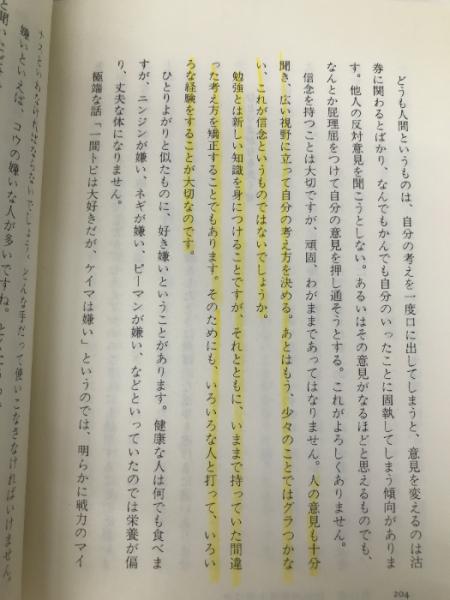 どうも人間というものは、自分の考えを一度口に出してしまうと、意見を変えるのは沽
券に関わるとばかり、なんでもかんでも自分のいったことに固執してしまう傾向がありま
す。他人の反対意見を聞こうとしない。あるいはその意見がなるほどと思えるものでも、
なんとか屁理屈をつけて自分の意見を押し通そうとする。これがよろしくありません。
信念を持つことは大切ですが、頑固、わがままであってはなりません。人の意見も十分
聞き、広い視野に立って自分の考え方を決める。あとはもう、少々のことではグラつかな
い、これが信念というものではないでしょうか。
勉強とは新しい知識を身につけることですが、それとともに、いままで持っていた間違
った考え方を矯正することでもあります。そのためにも、いろいろな人と打って、いろい
ろな経験をすることが大切なのです。
ひとりよがりと似たものに、好き嫌いということがあります。健康な人は何でも食べま
すが、ニンジンが嫌い、ネギが嫌い、ピーマンが嫌い、などといっていたのでは栄養が偏
り、丈夫な体になりません。
極端な話「一間トビは大好きだが、ケイマは嫌い」というのでは、明らかに戦力のマイ
204
ナスといわなければならないでしょう。どんな手だって使いこなさなければいけません。
嫌いといえば、コウの嫌いな人が多いですね。